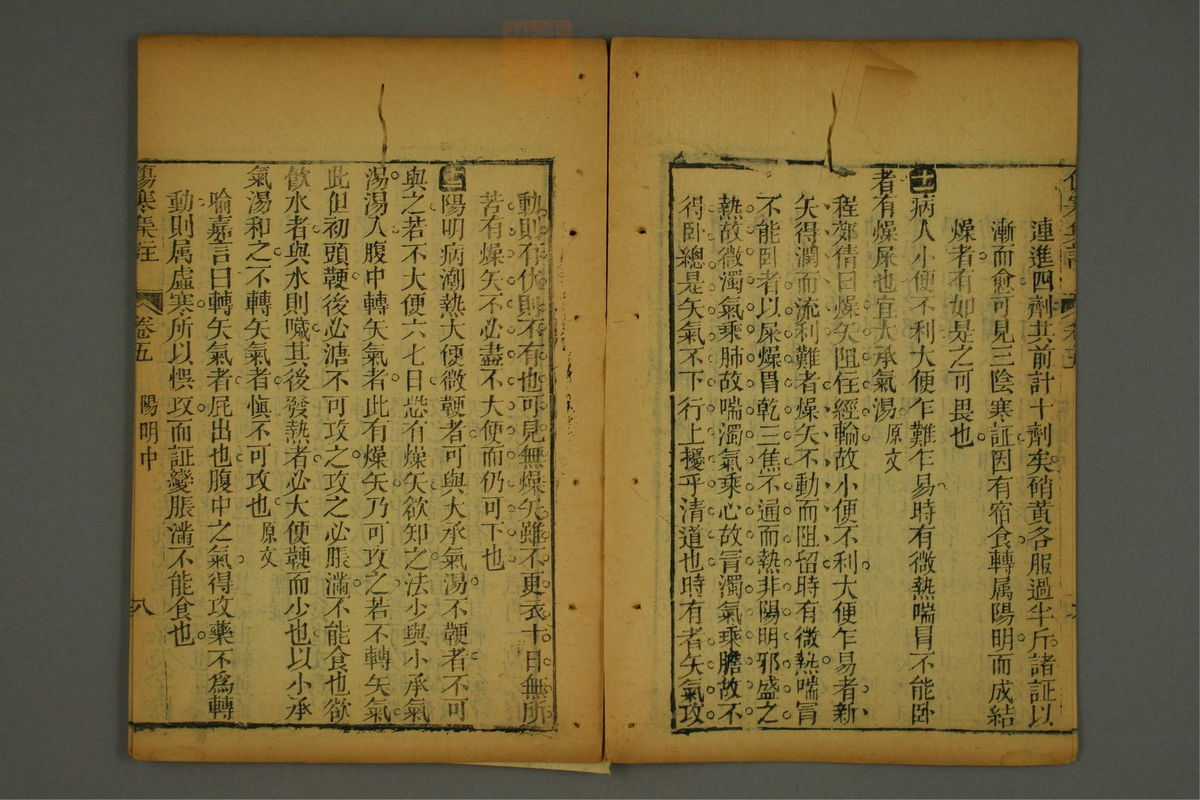 連進四劑其前計十劑矣硝黃各服過半斤諸証以
漸而愈可見三陰寒証因有宿食轉属陽明而成結
燥者有如是之可畏也
十病人小便不利大便乍難乍易時有微熱喘冒不能卧
者有燥屎也宜大承氣湯原文
程郊倩曰燥矢阻住經輸故小便不利大便乍易者新
矢得潤而流利難者燥矢不動而阻留時有微熱喘冐
不能卧者以屎燥胃乾三焦不通而熱非陽明邪盛之
熱故微濁氣乘肺故喘濁氣乘心故冐濁氣乘膽故不
得卧總是矢氣不下行上擾乎清道也時有者矢氣攻
動則有伏則不有也可見無燥矢雖不更衣十日無所
苦有燥矢不必盡不大便而仍可下也
陽明病潮熱大便微鞕者可與大承氣湯不鞕者不可
與之若不大便六七日恐有燥矢欲知之法少與小承氣
湯湯入腹中轉矢氣者此有燥矢乃可攻之若不轉矢氣
此但初頭鞕後必溏不可攻之攻之必脹滿不能食也欲
飲水者與水則噦其後發熱者必大便鞕而少也以小承
氣湯和之不轉矢氣者愼不可攻也原文
喻嘉言曰轉矢氣者屁出也腹中之氣得攻藥不爲轉
動則属虛寒所以悞攻而証變脹滿不能食也
傷寒集註 卷五 陽明中 八